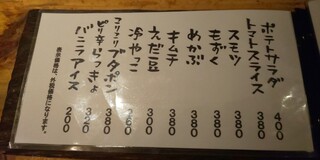 ポテトサラダ 400
トマトスライス 380
スモツ 380
もずく 380
めかぶ 380
キムチ 380
えだ豆 380
冷やっこ 300
コリコリブタポン 380
ピリ辛らっきょ 320
バニラアイス 200
表示価格は、外税価格になります。